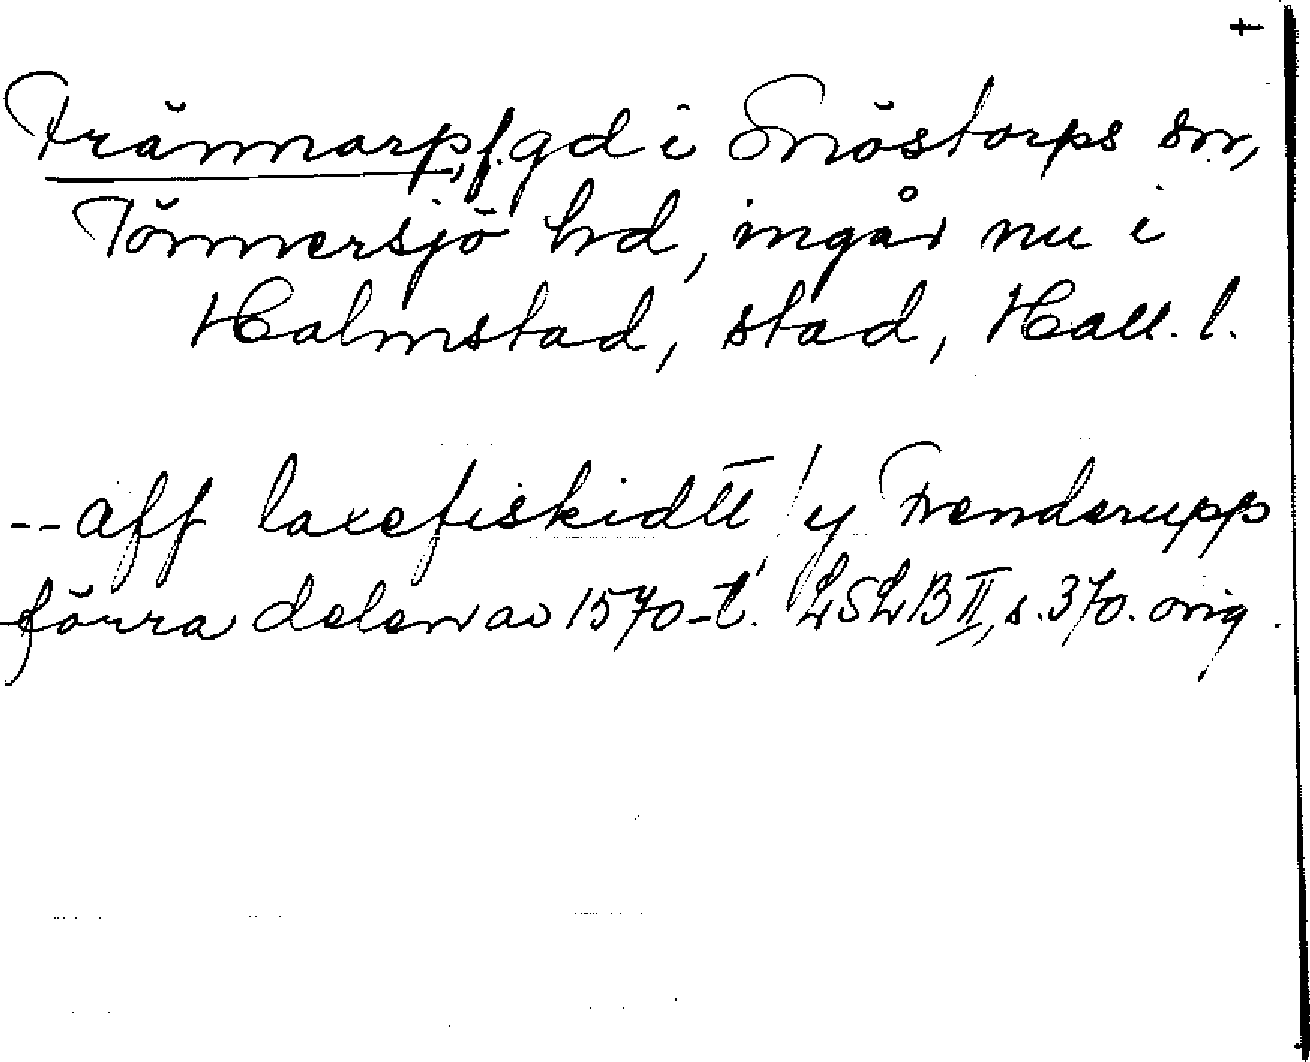 †
Frännarp, f. gd i Snöstorps sn,
Tönnersjö hd, ingår nu i
Halmstad, stad, Hall. l.
-- aff laxefiskidtt / y Frenderupp
förra delen av 1570-t. LSLB II, s. 370. orig.